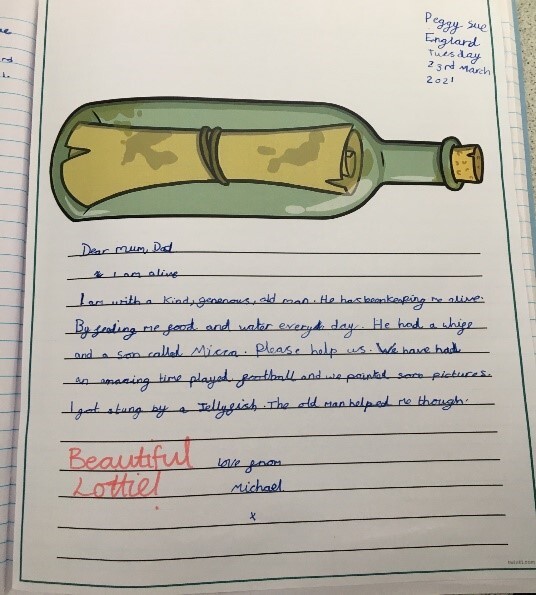 Peggy Sue
England
Tuesday
23rd March
2021
Dear mum, Dad
I am alive
I am with a kind, generous, old man. He has been keeping me alive.
By feading me food and water everyday day. He had a whife
and a son called Micca. Please help us. We have had
an amazing time played football and we painted some pictures.
I got stung by a Jellyfish. The old man helped me though.
Beautiful
Lottie!
love from
Michael
x